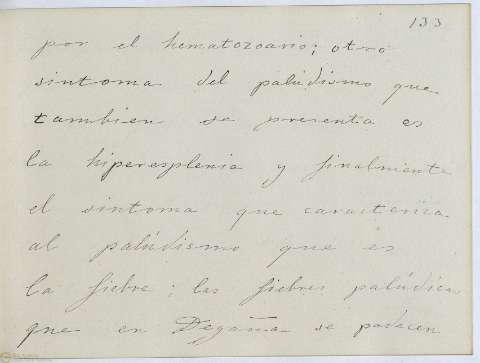 133
por el hematozoario; otro
sintoma del palúdismo que
tambien se presenta es
la hiperesplenia y finalmente
el sintoma que caracteriza
al palúdismo que es
la fiebre; las fiebres palúdicas
que en Degaña se padecen